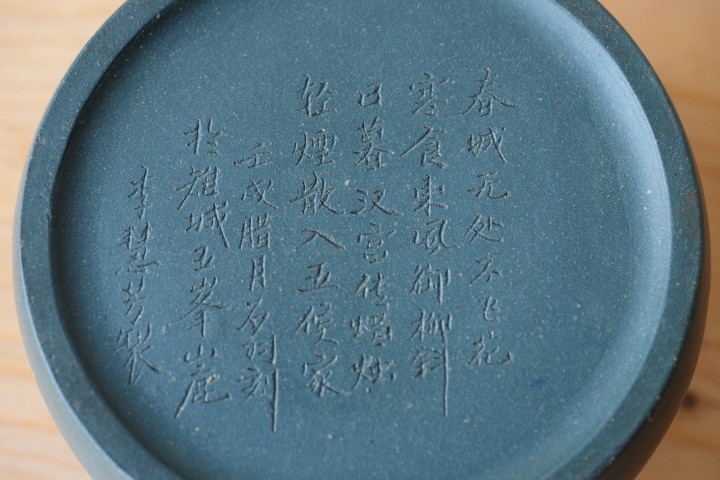 春城无处不飞花
寒食東风御柳斜
日暮汉宫传蜡烛
轻煙散入五侯家
壬戌腊月石羽刻
於雉城五峯山麓
李慧芳製